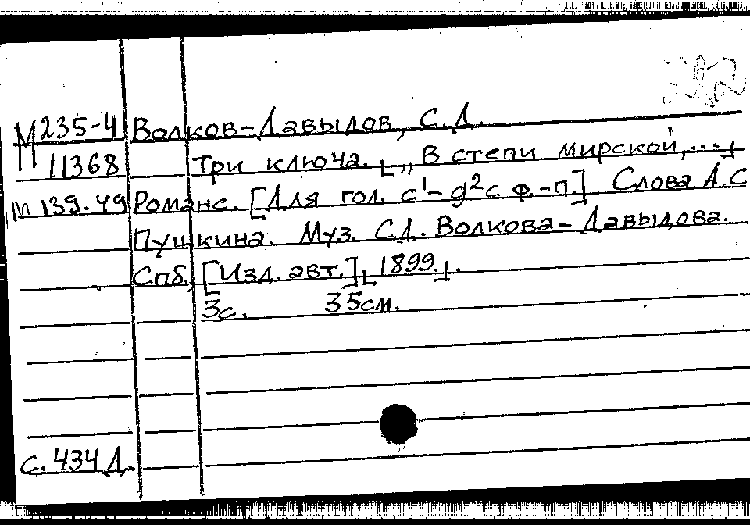 М 235-4 Волков-Давыдов, С.Д.
11368 Три ключа. [„В степи мирской,...]
m 139.49 Романс. [Для гол. c¹-g²с ф.-п] Слова А.С
Пушкина. Муз. С.Д. Волкова-Давыдова.
Спб, [Изд. авт.], [1899.].
3с. 35см.
с. 434 Д.